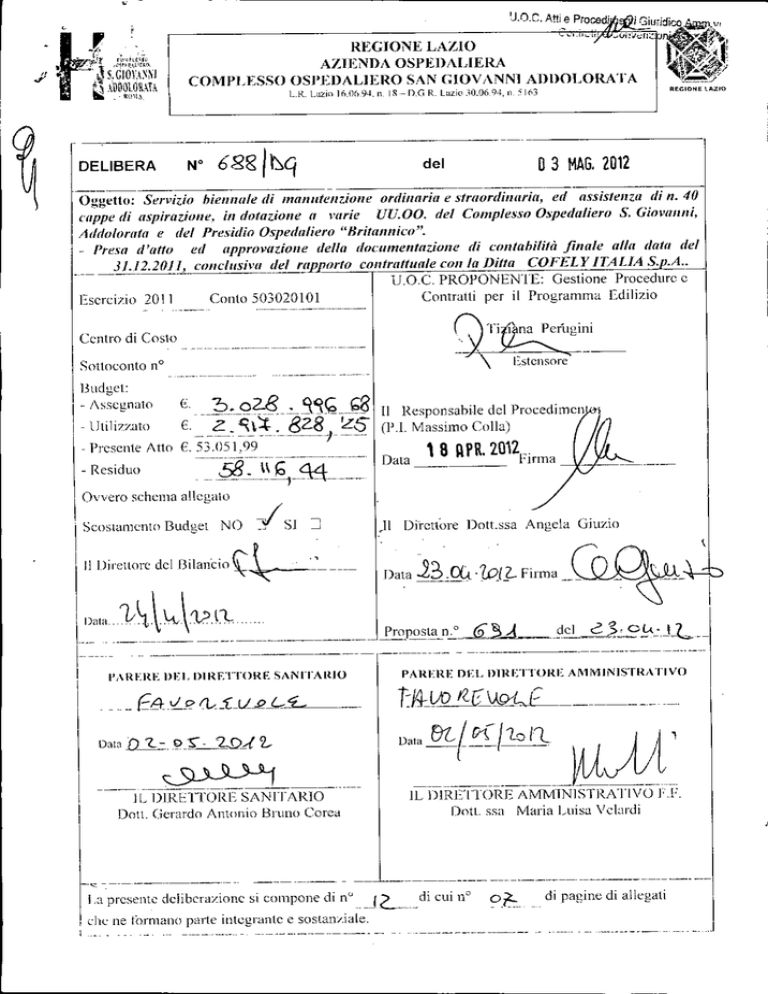 U.O.C. Atti e Giuridico Amm.vi
COMPLESSO
OSPEDALIERO
S. GIOVANNI
ADDOLORATA
ROMA
REGIONE LAZIO
AZIENDA OSPEDALIERA
COMPLESSO OSPEDALIERO SAN GIOVANNI ADDOLORATA
L.R. Lazio 16.06.94, n. 18 – D.G R. Lazio 30.06.94, n. 5163
REGIONE LAZIO
DELIBERA N° 688/DG del 03 MAG. 2012
Oggetto: Servizio biennale di manutenzione ordinaria e straordinaria, ed assistenza di n. 40
cappe di aspirazione, in dotazione a varie UU.OO. del Complesso Ospedaliero S. Giovanni,
Addolorata e del Presidio Ospedaliero "Britannico".
- Presa d'atto ed approvazione della documentazione di contabilità finale alla data del
31.12.2011, conclusiva del rapporto contrattuale con la Ditta COFELY ITALIA S.p.A..
U.O.C. PROPONENTE: Gestione Procedure e
Contratti per il Programma Edilizio
Esercizio 2011 Conto 503020101
Tiziana Perugini
Centro di Costo
Estensore
Sottoconto n°
Budget:
- Assegnato €. 3.028.996 68
- Utilizzato €. 2.917.828,25
- Presente Atto €. 53.051,99
- Residuo 58.116,44
Il Responsabile del Procedimento
(P.I. Massimo Colla)
Data 18 APR. 2012 Firma
Ovvero schema allegato
Scostamento Budget NO SI
Il Direttore Dott.ssa Angela Giuzio
Il Direttore del Bilancio
Data 23.04.2012 Firma
Data 24/4/2012
Proposta n.° 691 del 23.04.12
PARERE DEL DIRETTORE SANITARIO
FAVOREVOLE
Data 02-05-2012
IL DIRETTORE SANITARIO
Dott. Gerardo Antonio Bruno Corea
PARERE DEL DIRETTORE AMMINISTRATIVO
FAVOREVOLE
Data 02/05/2012
IL DIRETTORE AMMINISTRATIVO F.F.
Dott. ssa Maria Luisa Velardi
La presente deliberazione si compone di n° 12 di cui n° 07 di pagine di allegati
che ne formano parte integrante e sostanziale.